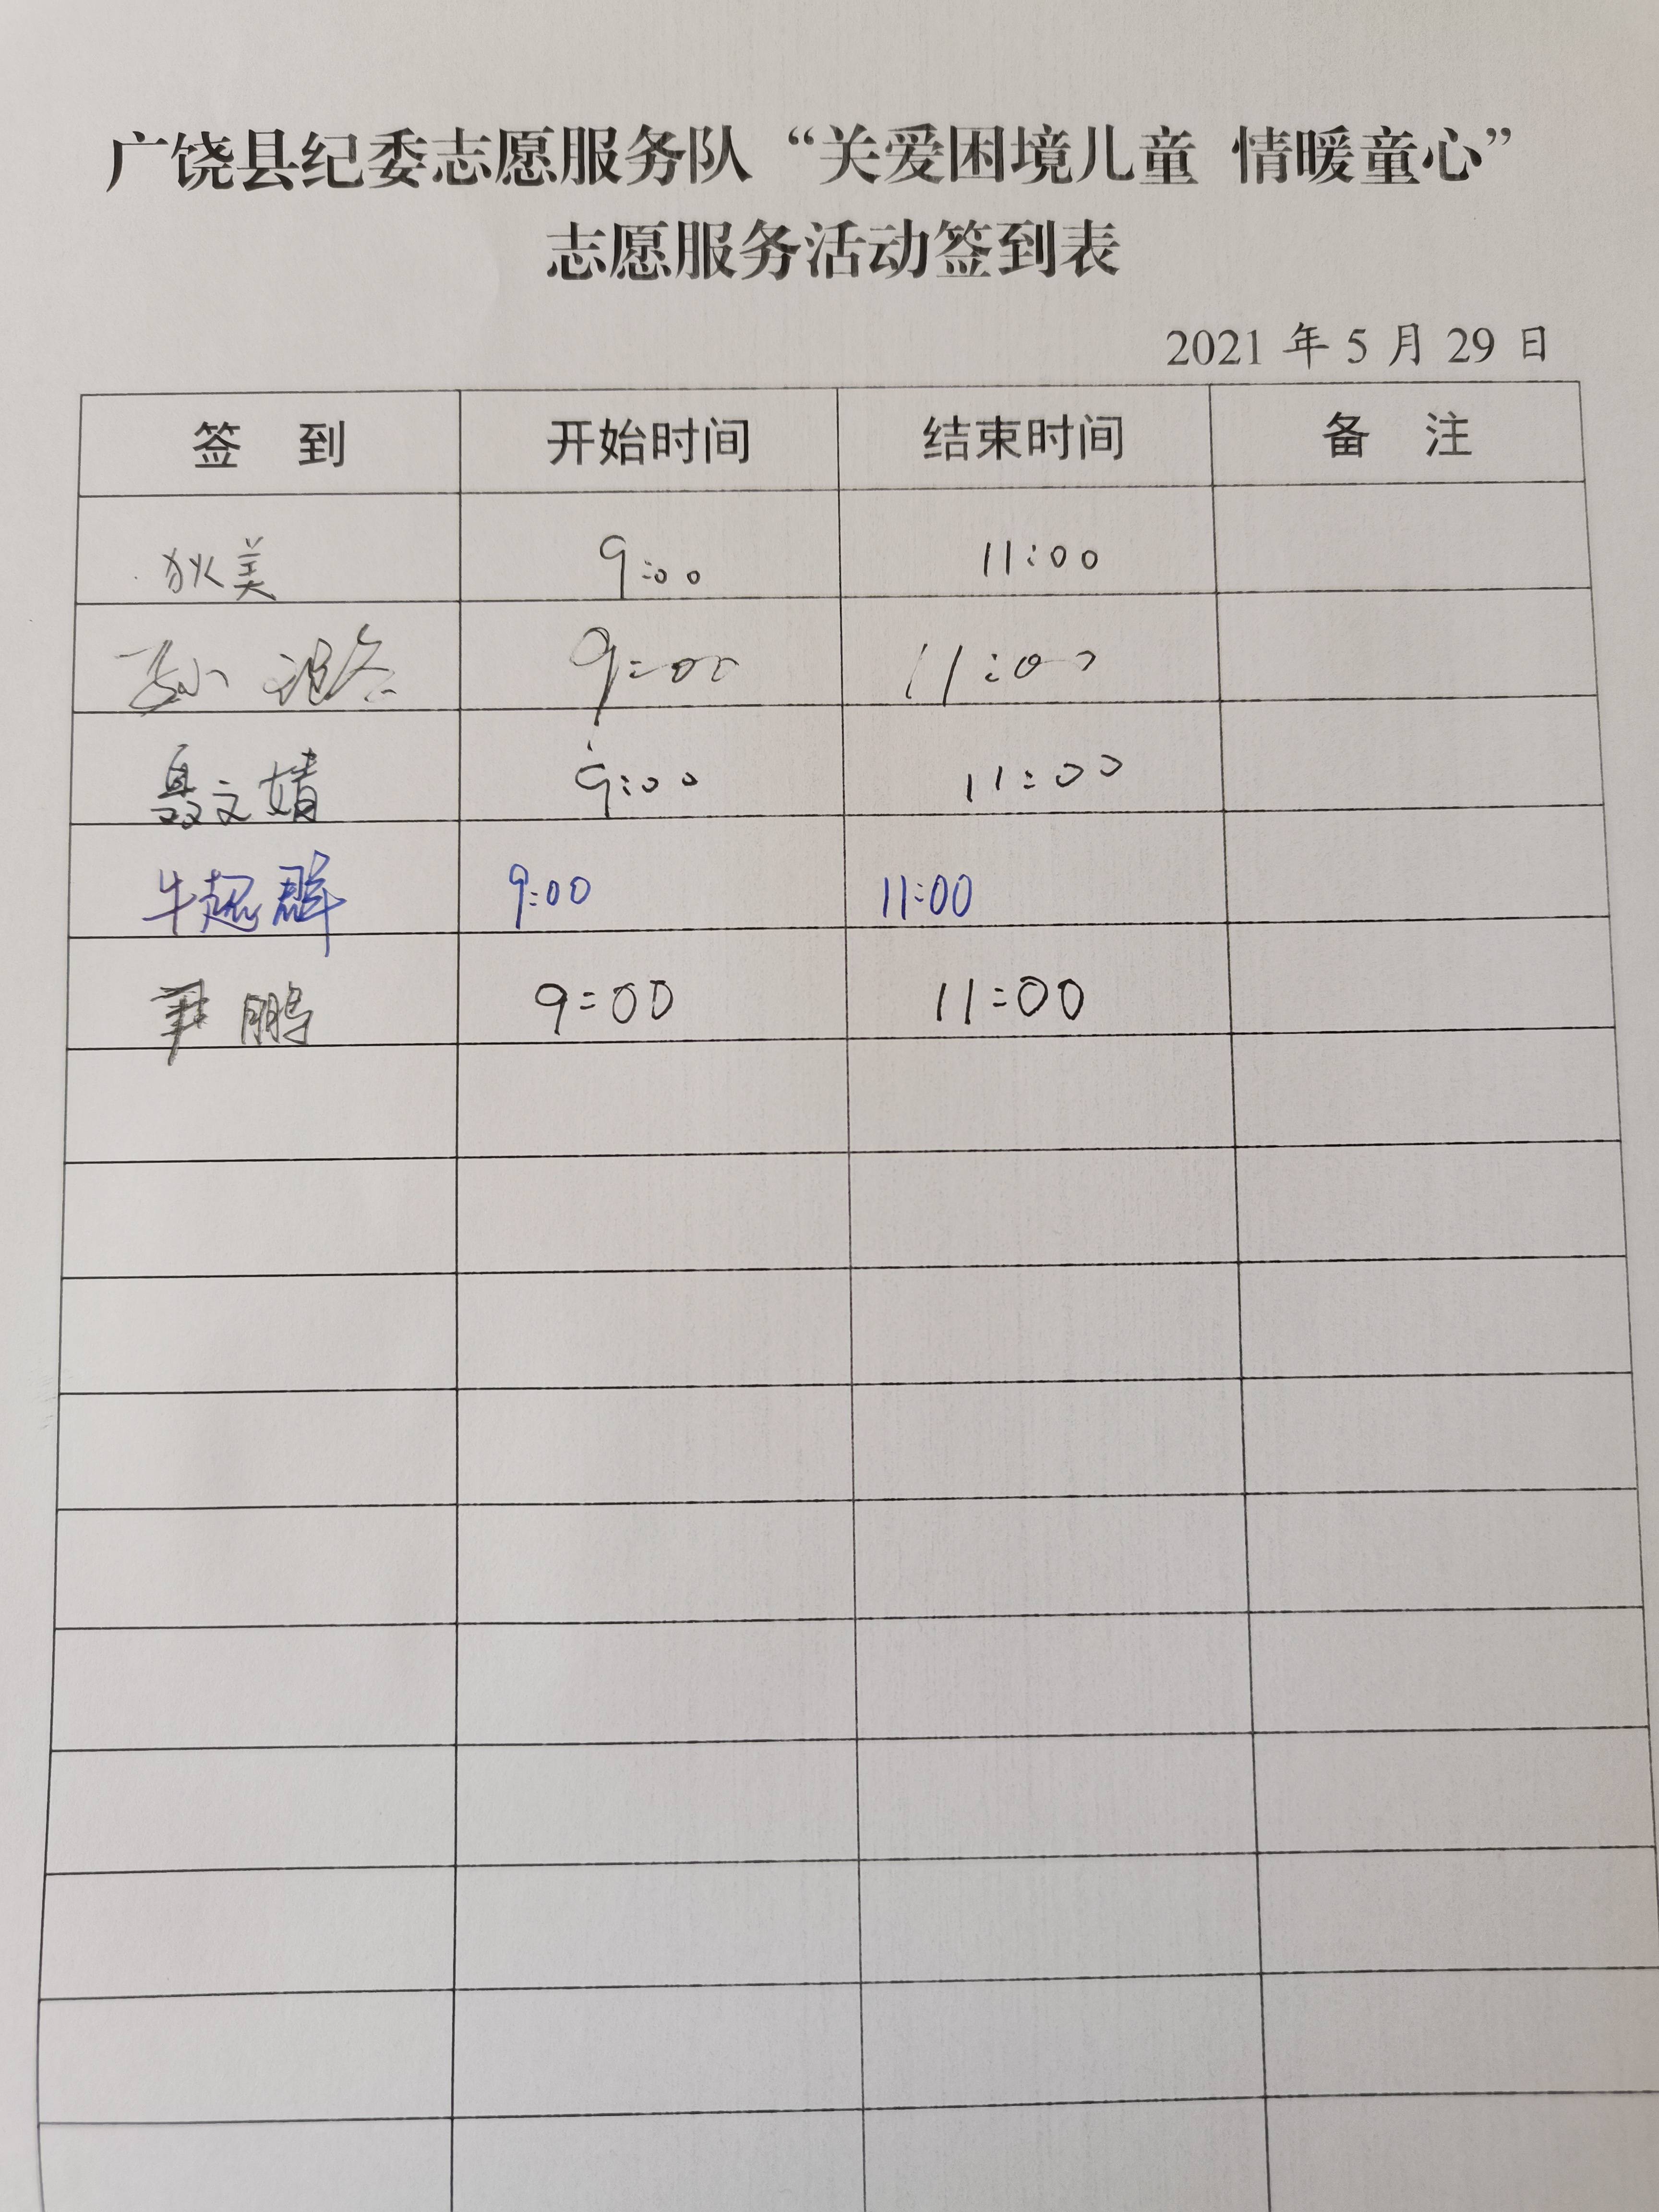 广饶县纪委志愿服务队“关爱困境儿童 情暖童心”
志愿服务活动签到表
2021 年 5 月 29 日
签 到 开始时间 结束时间 备 注
狄美 9:00 11:00
孙 9:00 11:00
聂文婧 9:00 11:00
牛超群 9:00 11:00
尹鹏 9:00 11:00